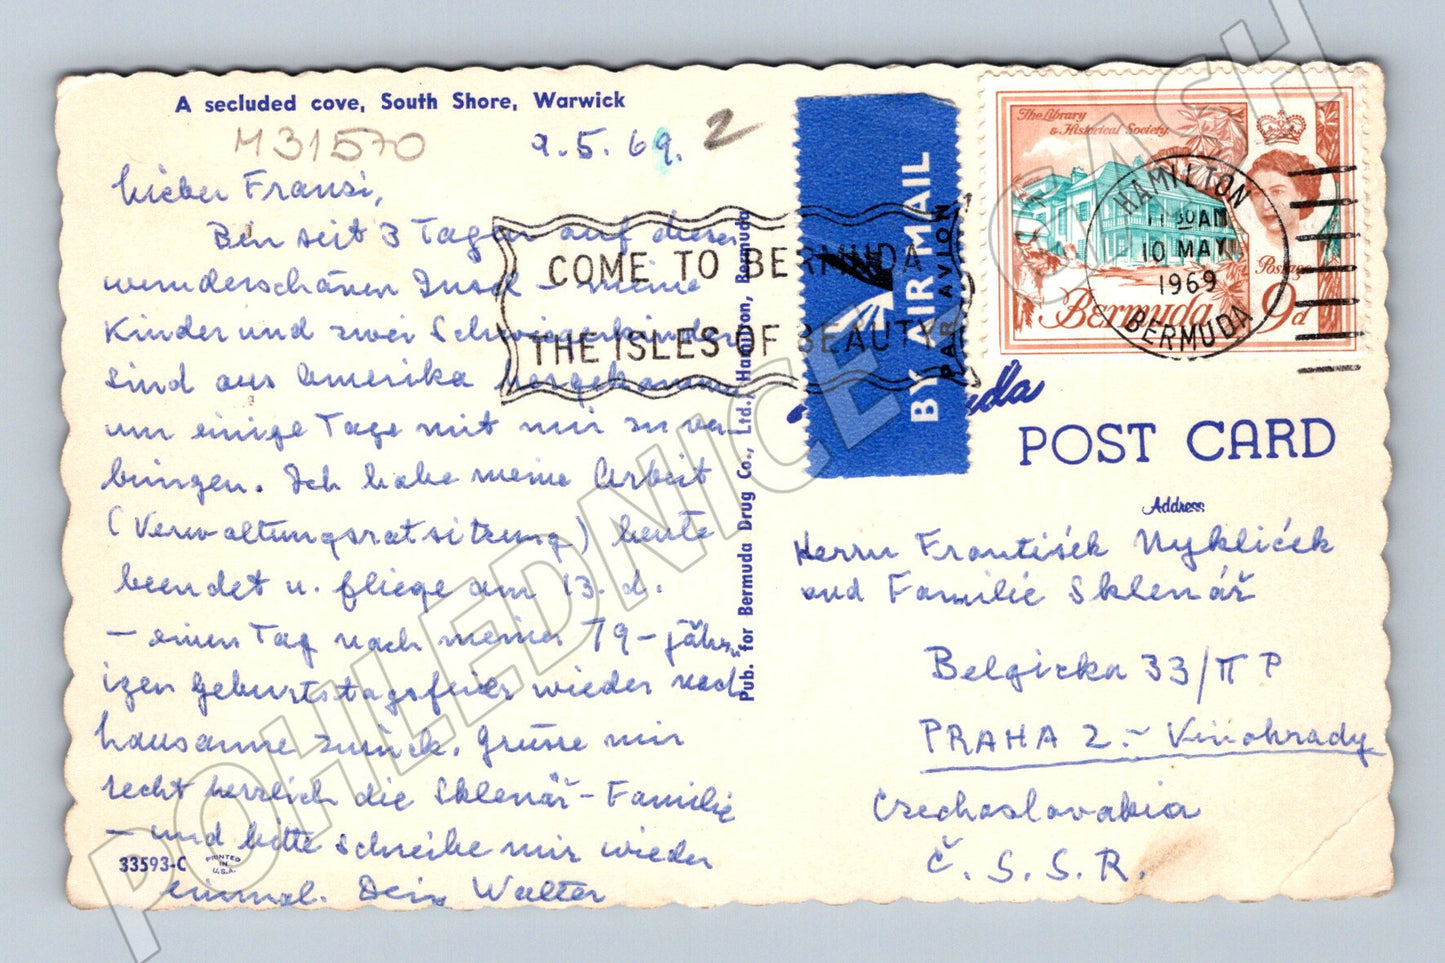 A secluded cove, South Shore, Warwick
M31570
9.5.69.
2
Lieber Fransi,
Bin seit 3 Tagen auf dieser
wunderschönen Insel – meine
Kinder und zwei Schwiegerkinder
sind aus Amerika hergekommen
um einige Tage mit mir zu ver-
bringen. Ich habe meine Arbeit
(Verwaltungsratsitzung) heute
beendet u. fliege am 13. d.
– einen Tag nach meiner 79-jähr
igen Geburtstagsfeier wieder nach
hausanne zurück. Grüsse mir
recht herzlich die Sklenář-Familie
– und bitte schreibe mir wieder
einmal. Dein Walter
33593-C
PRINTED
IN
U.S.A.
Pub. for Bermuda Drug Co., Ltd., Hamilton, Bermuda
COME TO BERMUDA
THE ISLES OF BEAUTY
BY AIR MAIL
PAR AVION
The Library
& Historical Society
Postage
Bermuda 9d
HAMILTON
11 30 AM
10 MAY
1969
BERMUDA
POST CARD
Address
Herrn František Nykliček
und Familie Sklenář
Belgicka 33/II P
PRAHA 2 – Vinohrady
Czechoslovakia
Č. S. S. R.
POHLEDNICE CASH